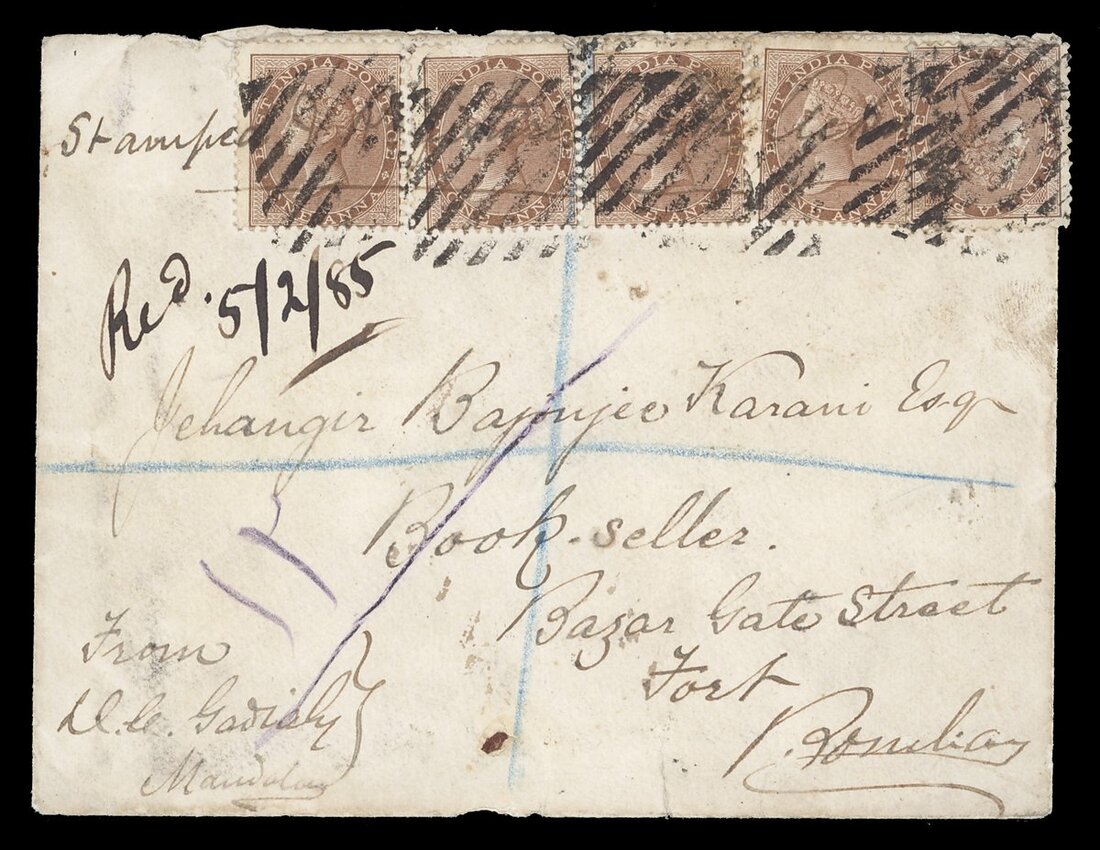 Stamped
EAST INDIA POSTAGE EAST INDIA POSTAGE EAST INDIA POSTAGE EAST INDIA POSTAGE
ONE ANNA ONE ANNA ONE ANNA ONE ANNA
Recd. 5/2/85
Jehangir Bejonjee Karani Esqr
Book-seller.
Bazar Gate Street
Fort
Bombay
From
Mandalay